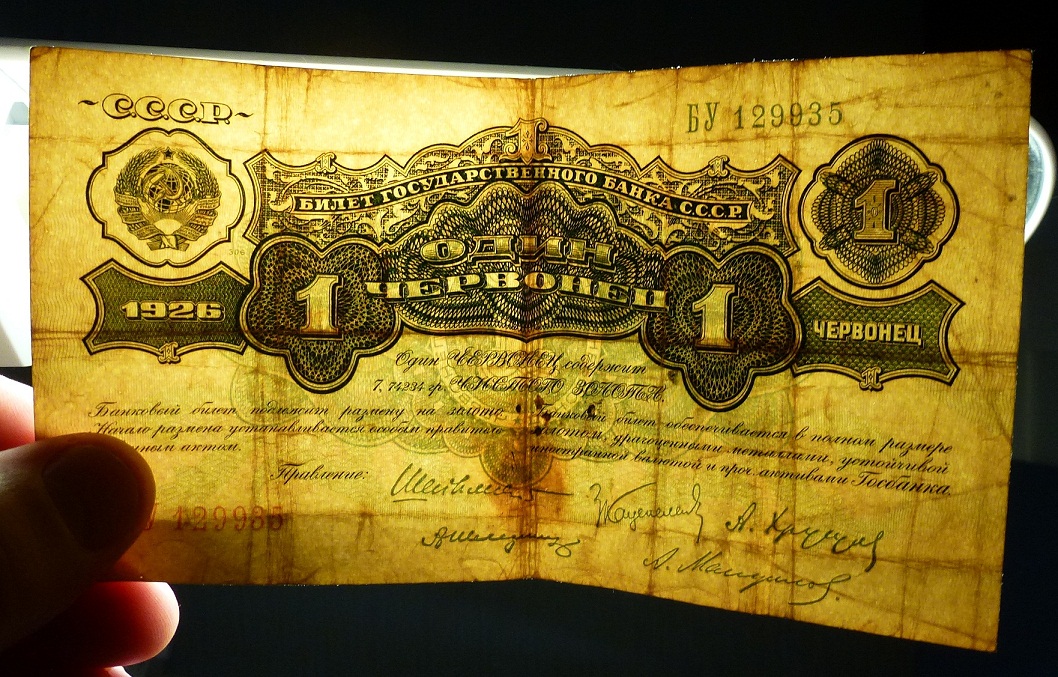 С.С.С.Р.
БУ 129935
1
1
1
БИЛЕТ ГОСУДАРСТВЕННОГО БАНКА С.С.С.Р.
1
ОДИН
ЧЕРВОНЕЦ
1926
1
1
ЧЕРВОНЕЦ
1
1
Один ЧЕРВОНЕЦ содержит
7,74234 гр. ЧИСТОГО ЗОЛОТА.
Банковый билет подлежит размену на золото.
Начало размена устанавливается особым правитель-
ным актом.
Банковый билет обеспечивается в полном размере
золотом, драгоценными металлами, устойчивой
иностранной валютой и проч. активами Госбанка.
Правление:
У 129935